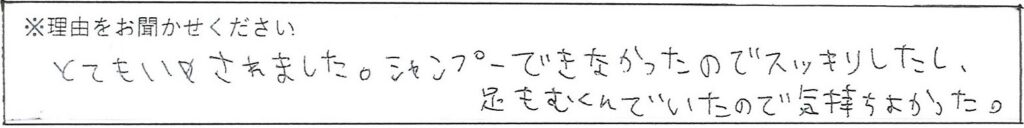 ※理由をお聞かせください
とてもいやされました。シャンプーできなかったのでスッキリしたし、
足もむくんでいたので気持ちよかった。